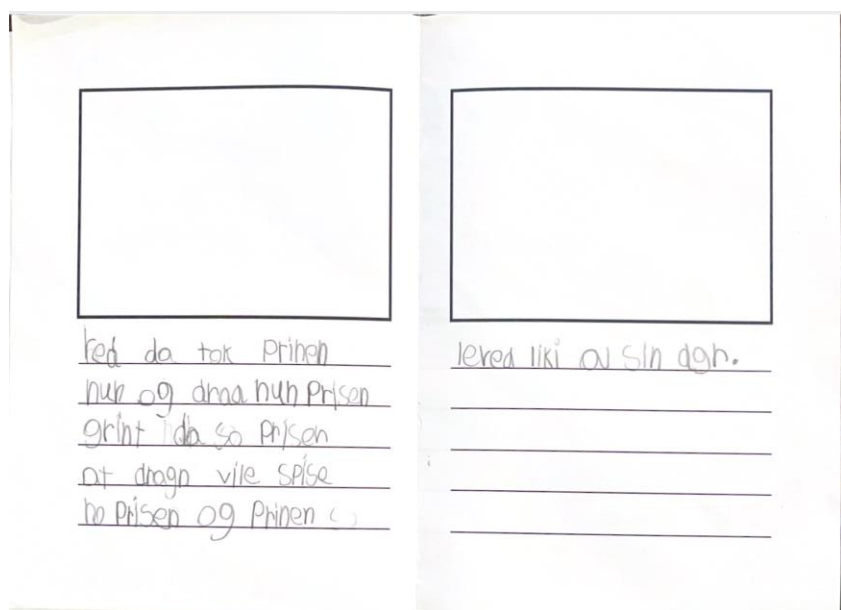 red da tok prinen
nun og drna nun Prisen
grint da so prisen
at dragn vile spise
ho Prisen og Prinen
leved liki av sin dgr.